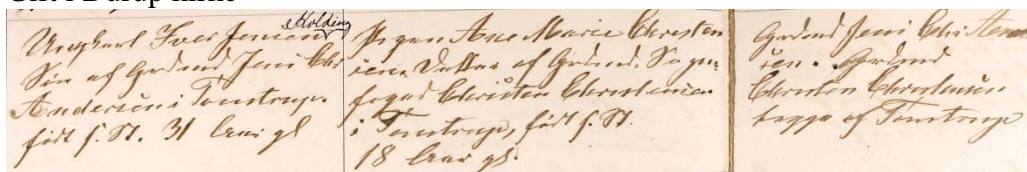 Gift i Durup kirke
Ungkarl Iver Jensen Kolding
Søn af Grdmd Jens Chr
Andersen i Tøustrup.
født s. St. 31 Aar gl
Pigen Ane Marie Christen
sen. Datter af Grdmd. Sogne
foged Christen Christensen
i Tøustrup, født s. St.
18 Aar gl.
Grdmd Jens Chr Ander
sen. Grdmd
Christen Christensen
begge af Tøustrup